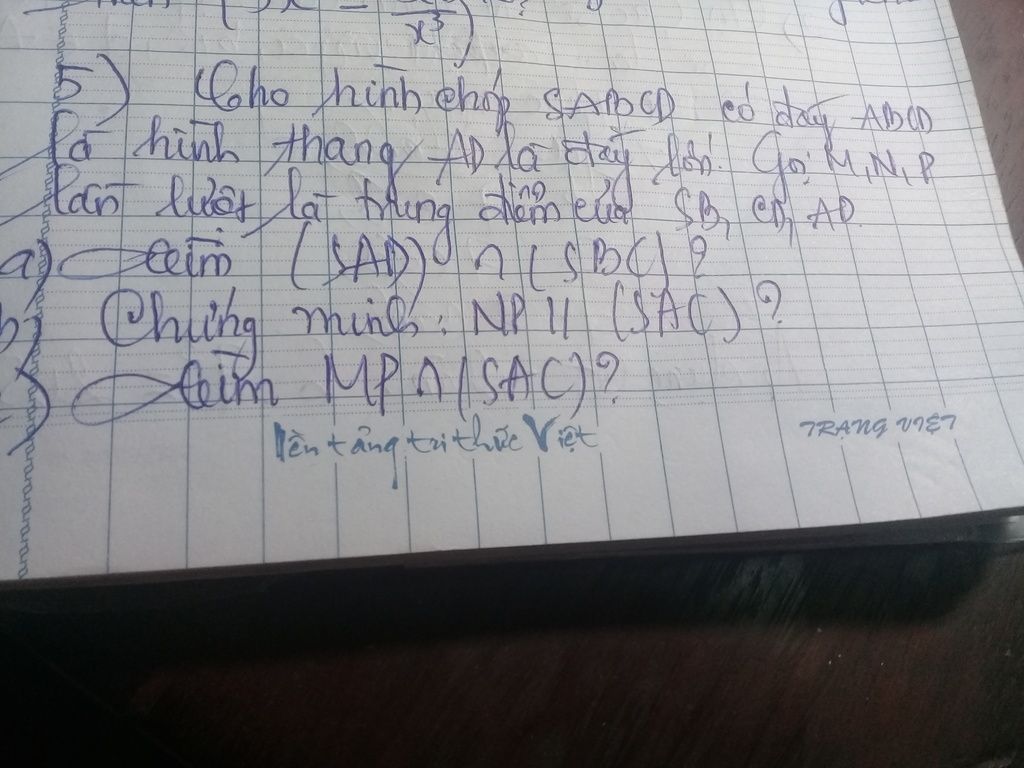 x³
5) Cho hình chóp SABCD có đáy ABCD
là hình thang AD là đáy lớn. Gọi M, N, P
lần lượt là trung điểm của SB, CD, AD.
a) tìm (SAD) ∩ (SBC) ?
b) Chứng minh: NP // (SAC) ?
tìm MP ∩ (SAC) ?
Nền tảng tri thức Việt
TRANG VIỆT